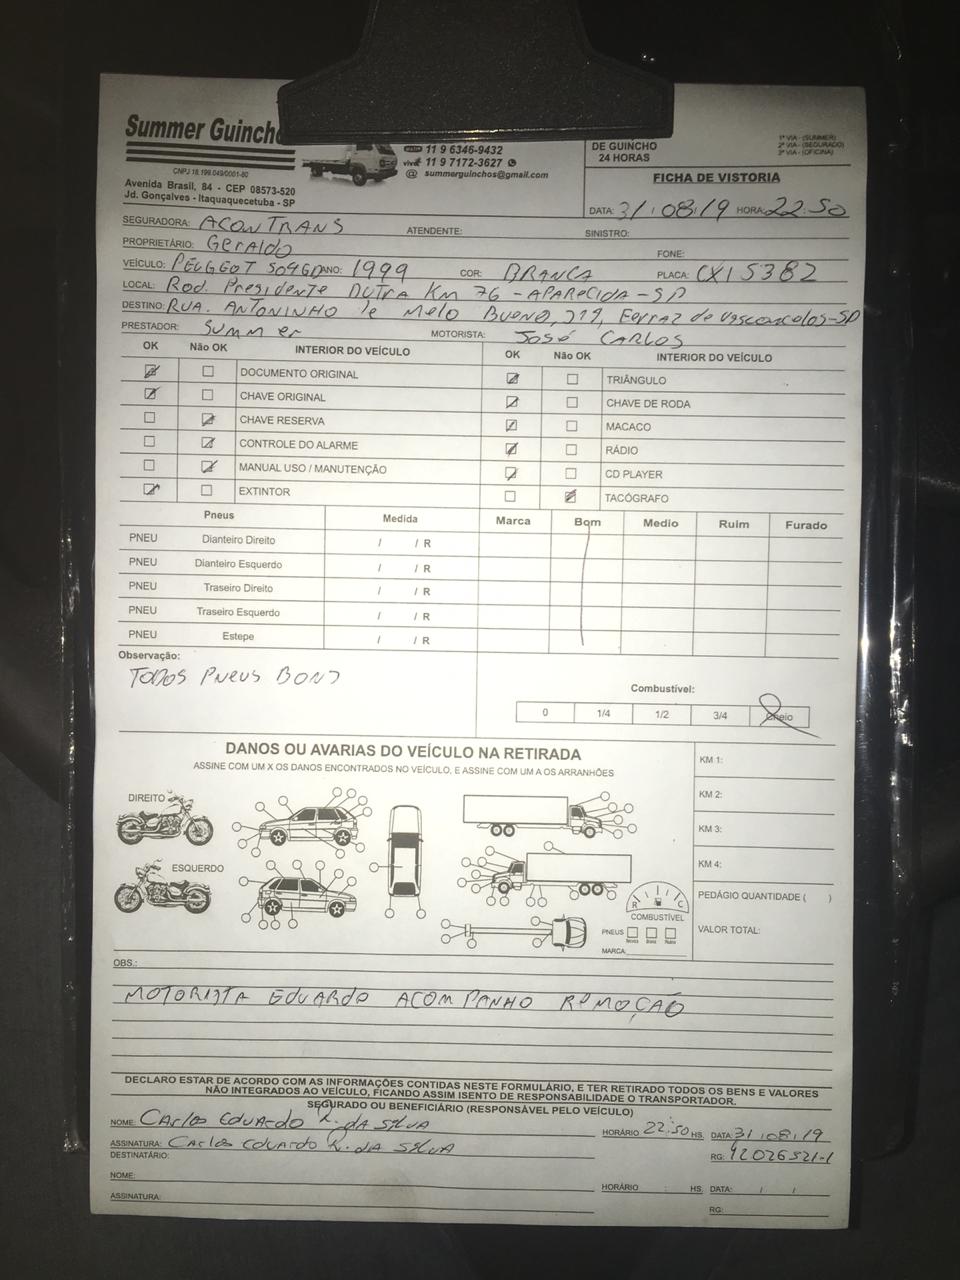 Summer Guincho
CNPJ 18.199.049/0001-80
Avenida Brasil, 84 - CEP 08573-520
Jd. Gonçalves - Itaquaquecetuba - SP
11 9 6346-9432
vivo 11 9 7172-3627
@ summerguinchos@gmail.com
DE GUINCHO
24 HORAS
1ª VIA - (SUMMER)
2ª VIA - (SEGURADO)
3ª VIA - (OFICINA)
FICHA DE VISTORIA
DATA: 31/08/19 HORA: 22:50
SEGURADORA: ACONTRANS ATENDENTE: SINISTRO:
PROPRIETÁRIO: Geraldo FONE:
VEÍCULO: PEUGEOT 504GD ANO: 1999 COR: BRANCA PLACA: CXI5382
LOCAL: Rod. Presidente DUTRA Km 76 - APARECIDA - SP
DESTINO: RUA. ANTONINHO de Melo BUENO, 219, Ferraz de Vasconcelos-SP
PRESTADOR: SUMMer MOTORISTA: JOSÉ CARLOS
OK Não OK INTERIOR DO VEÍCULO OK Não OK INTERIOR DO VEÍCULO
DOCUMENTO ORIGINAL TRIÂNGULO
CHAVE ORIGINAL CHAVE DE RODA
CHAVE RESERVA MACACO
CONTROLE DO ALARME RÁDIO
MANUAL USO / MANUTENÇÃO CD PLAYER
EXTINTOR TACÓGRAFO
Pneus Medida Marca Bom Medio Ruim Furado
PNEU Dianteiro Direito / / R
PNEU Dianteiro Esquerdo / / R
PNEU Traseiro Direito / / R
PNEU Traseiro Esquerdo / / R
PNEU Estepe / / R
Observação:
TODOS PNEUS BONS
Combustível:
0 1/4 1/2 3/4 Cheio
DANOS OU AVARIAS DO VEÍCULO NA RETIRADA
ASSINE COM UM X OS DANOS ENCONTRADOS NO VEÍCULO, E ASSINE COM UM A OS ARRANHÕES
DIREITO
ESQUERDO
R C
COMBUSTÍVEL
PNEUS
MARCA:
KM 1:
KM 2:
KM 3:
KM 4:
PEDÁGIO QUANTIDADE ( )
VALOR TOTAL:
OBS.:
MOTORISTA EDUARDO ACOMPANHO REMOÇÃO
DECLARO ESTAR DE ACORDO COM AS INFORMAÇÕES CONTIDAS NESTE FORMULÁRIO, E TER RETIRADO TODOS OS BENS E VALORES
NÃO INTEGRADOS AO VEÍCULO, FICANDO ASSIM ISENTO DE RESPONSABILIDADE O TRANSPORTADOR.
SEGURADO OU BENEFICIÁRIO (RESPONSÁVEL PELO VEÍCULO)
NOME: Carlos Eduardo R. DA SILVA HORÁRIO 22:50 HS. DATA: 31/08/19
ASSINATURA: Carlos Eduardo R. DA SILVA RG: 42026521-1
DESTINATÁRIO:
NOME: HORÁRIO : HS. DATA: / /
ASSINATURA: RG: